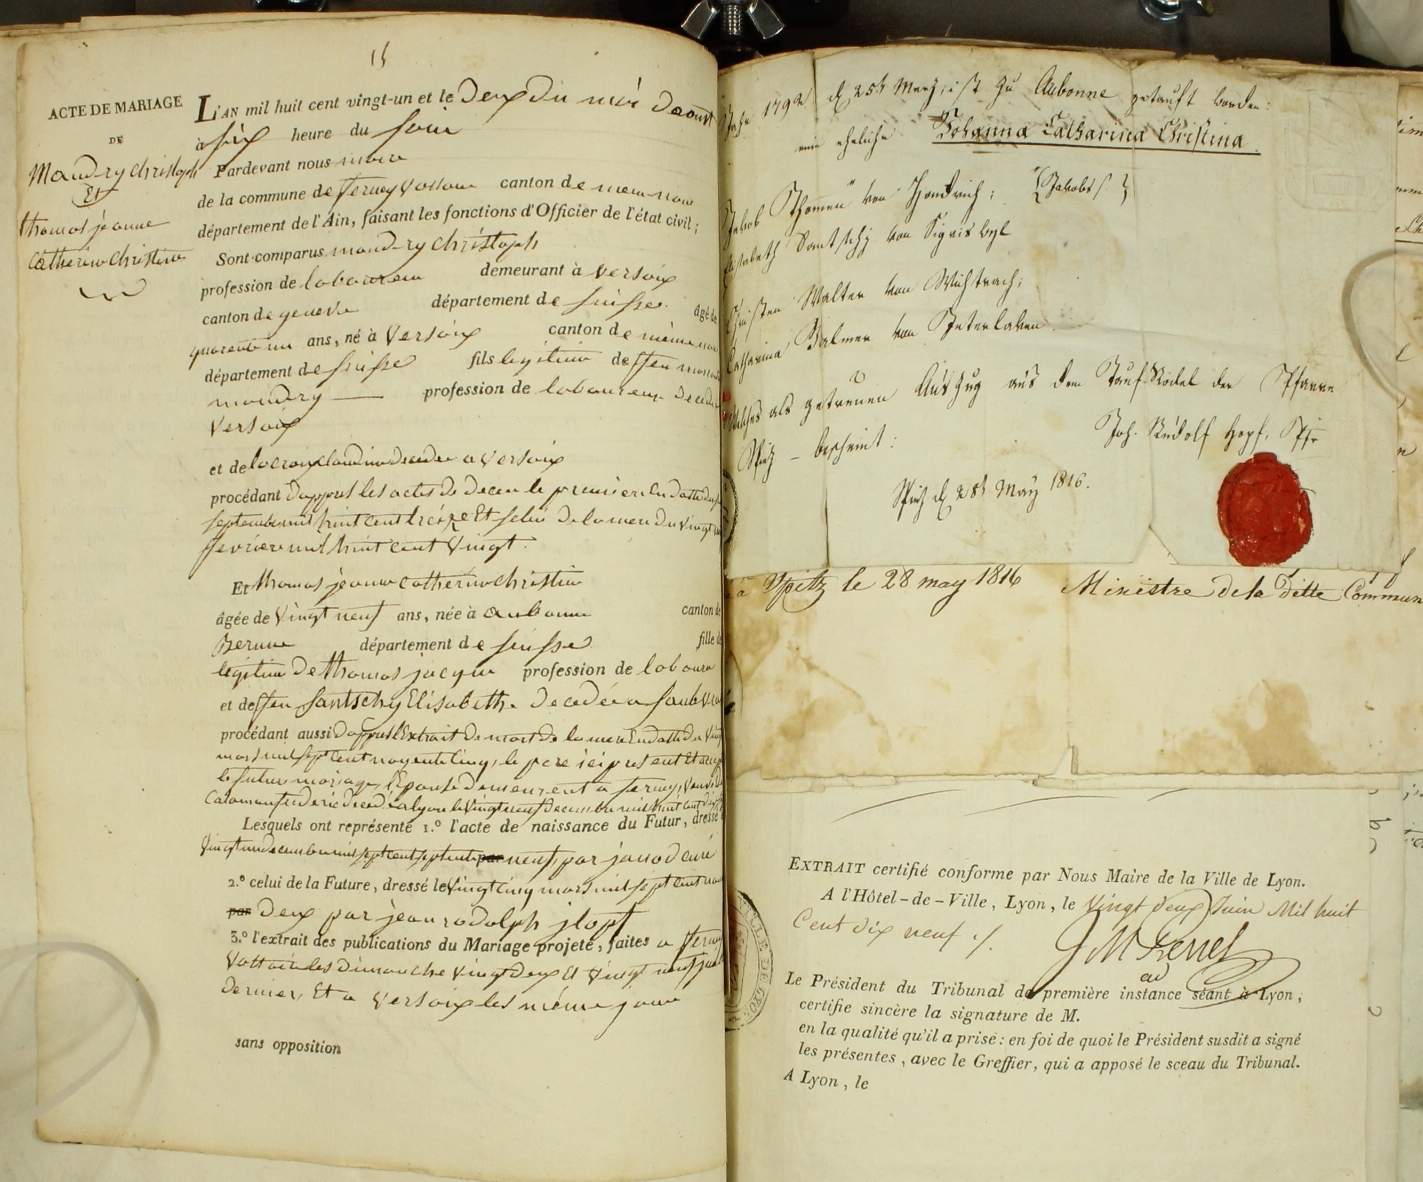 15
ACTE DE MARIAGE
DE
Maudry Christoph
Et
thomas jeanne
Catherine Christine
L'AN mil huit cent vingt-un et le Deux du mois Daoust
à six heure du soir
Pardevant nous maire
de la commune de ferney Vottaire canton de meme nom
département de l'Ain, faisant les fonctions d'Officier de l'état civil;
Sont comparus maudry Christoph
profession de laboureur demeurant à Versoix
canton de genève département de suisse âgé de
quarente un ans, né à Versoix canton de même nom
département de suisse fils legitime de ffeu
maudry profession de laboureur
Versoix
et de lacroix claudine decedee a Versoix
procédant Dappres les actes de deces le premier en datte du
septembre mil huit cent treize Et selui de la mere du Vingt
fevrier mil huit cent Vingt.
Et thomas jeanne catherine christine
âgée de Vingt neuf ans, née à aubonne canton de
Berne département de suisse fille
legitime de thomas jacque profession de laboure
et de ffeu santschy Elisabeth Decedée a
procédant aussi Dappres l'Extrait de mort de la mere En datte du Vingt
mars mil sept cent nonente cinq, le pere ici present Et
le futur mariage, l'Epouse demeurent a ferney, Veuve
frederic decedé a lyon le Vingt neuf Decembre mil huit cent
Lesquels ont représenté 1.° l'acte de naissance du Futur, dressé
Vingt un decembre mil sept cent septente par neuf, par
2.° celui de la Future, dressé le Vingt cinq mars mil sept cent
par Deux par jean rodolph
3.° l'extrait des publications du Mariage projeté, faites a ferney
Vottaire les Dimanche Vingt Deux Et Vingt neuf
Dernier, Et a Versoix les même jour
sans opposition
1792 d. 25t Merz, ist zu Aubonne getauft worden:
eine eheliche Johanna Catharina Christina.
Jakob Thomen von : {Jakobs }
Elisabeth Santschy von Sigriswyl
Christen Walter von Wichtrach;
Catharina Balmer von Interlaken
als getreuen Auszug aus dem Tauf-Rodel der Pfarre
Spiez bescheint: Joh. Rudolf Hopf, Pfr
Spiez d. 28t May 1816.
à Spitz le 28 may 1816 Ministre de la ditte Commun
EXTRAIT certifié conforme par Nous Maire de la Ville de Lyon.
A l'Hôtel-de-Ville, Lyon, le Vingt deux Juin Mil huit
Cent dix neuf ./.
Le Président du Tribunal de première instance séant à Lyon,
certifie sincère la signature de M.
en la qualité qu'il a prise: en foi de quoi le Président susdit a signé
les présentes, avec le Greffier, qui a apposé le sceau du Tribunal.
A Lyon, le